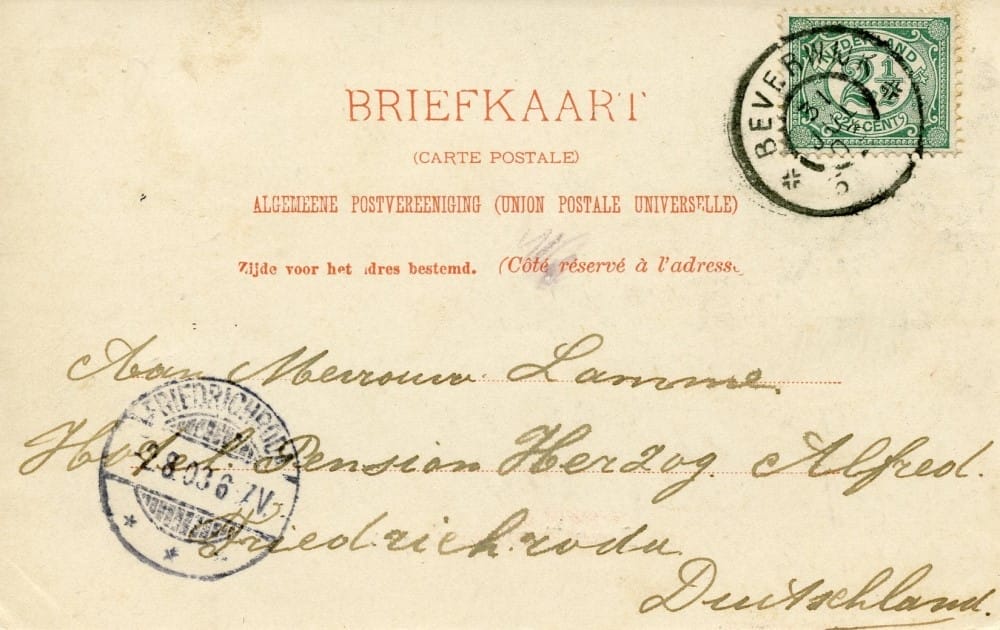 BRIEFKAART
(CARTE POSTALE)
ALGEMEENE POSTVEREENIGING (UNION POSTALE UNIVERSELLE)
Zijde voor het adres bestemd. (Côté réservé à l'adresse
NEDERLAND
2½
2½ CENT
BEVERWIJK
31
Aan Mevrouw Lamme.
Hotel Pension Herzog Alfred.
Friedrichroda
Duitschland.
FRIEDRICHRODA
2.8.03 6-7V.